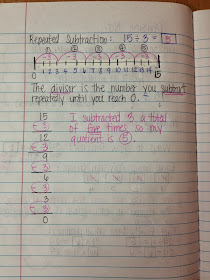 Repeated Subtraction: 15 ÷ 3 = 5
① ② ③ ④ ⑤
-3 -3 -3 -3 -3
0 1 2 3 4 5 6 7 8 9 10 11 12 13 14 15
The divisor is the number you subtract
repeatedly until you reach 0.
15 I subtracted 3 a total
- 3 of five times, so my
12 quotient is ⑤.
- 3
9
- 3
6
- 3
3
- 3
0